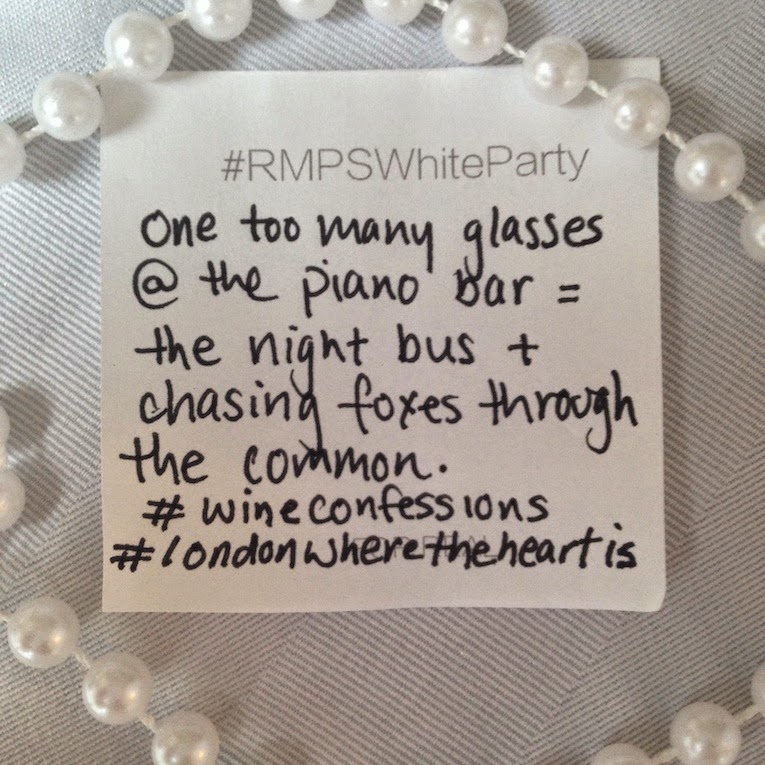 #RMPSWhiteParty
One too many glasses
@ the piano bar =
the night bus +
chasing foxes through
the common.
# wineconfessions
#londonwheretheheartis